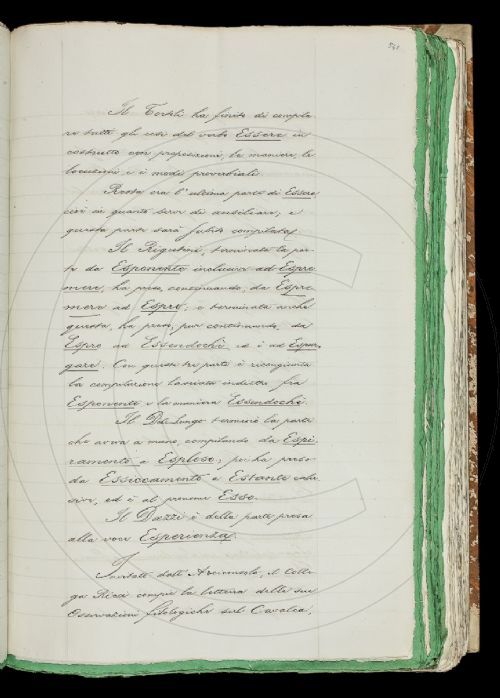 561
Il Tortoli ha finito di compila-
re tutti gli usi del verbo Essere in
costrutto con preposizioni, le maniere, le
locuzioni e i modi proverbiali.
Resta ora l'ultima parte di Essere
cioè in quanto serve di ausiliare, e
questa parte sarà subito compilata.
Il Rigutini, terminata la par-
te da Esponente inclusive ad Espri-
mere, ha preso, continuando, da Espri-
mere ad Espro; e terminata anche
questa, ha preso, pur continuando, da
Espro ad Essendochè ed è ad Espur-
gare. Con queste tre parti è ricongiunta
la compilazione lasciata indietro fra
Esponente e la maniera Essendochè.
Il Del Lungo terminò la parte
che aveva a mano, compilando da Espi-
ramento a Esploso; poi ha preso
da Essiccamento a Estante
ed è al pronome Esso.
Il Dazzi è della parte presa
alla voce Esperienza.
Invitato dall'Arciconsolo, il Colle-
ga Ricci compie la lettura delle sue
Osservazioni filologiche sul Cavalca,